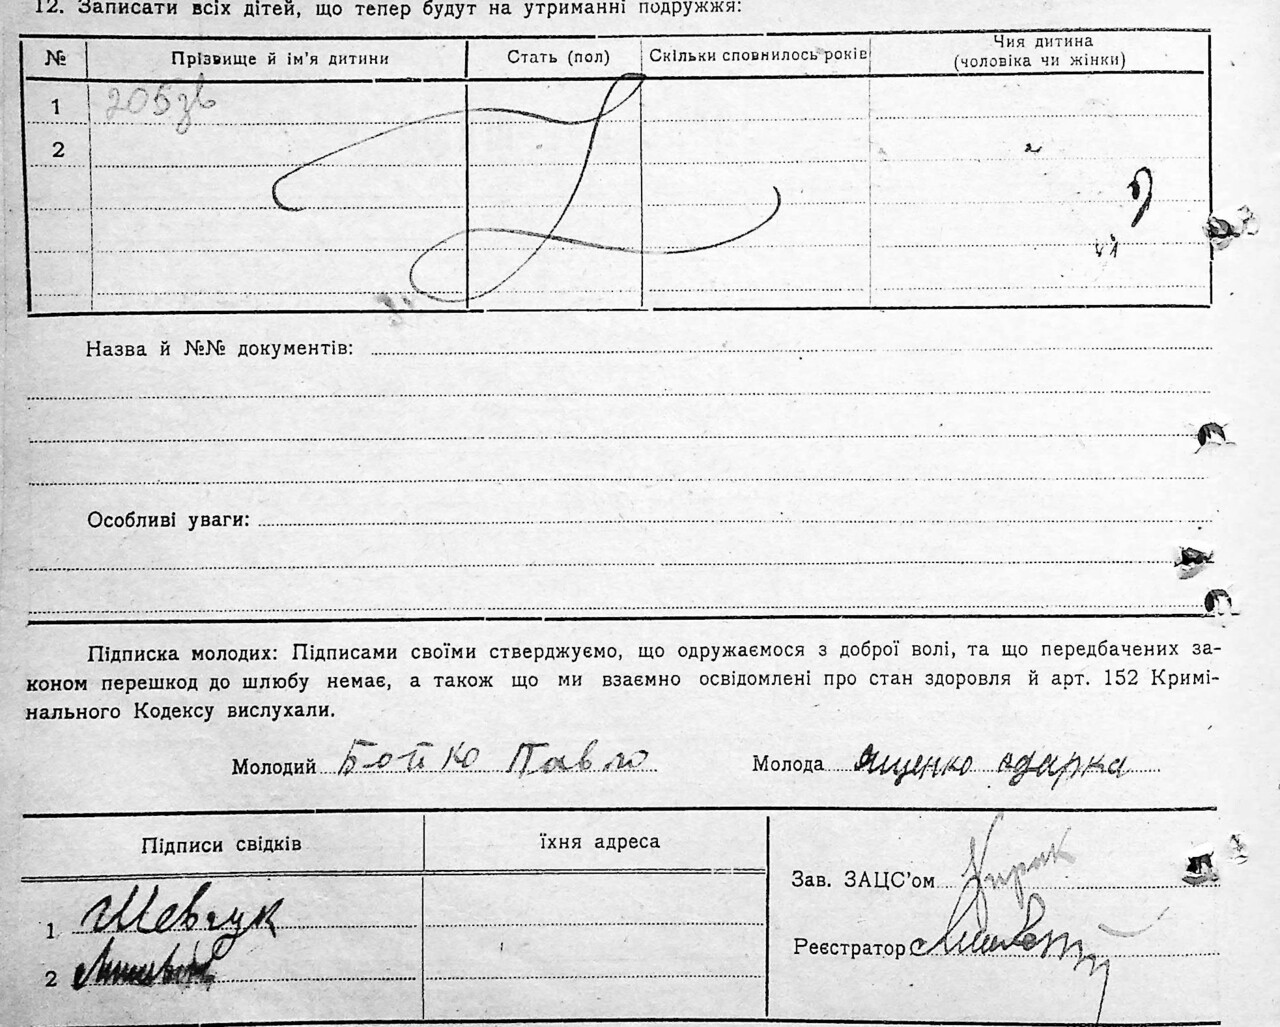 12. Записати всіх дітей, що тепер будут на утриманні подружжя:
№ Прізвище й ім'я дитини Стать (пол) Скільки сповнилось років Чия дитина (чоловіка чи жінки)
1
2
Назва й №№ документів:
Особливі уваги:
Підписка молодих: Підписами своїми стверджуємо, що одружаємося з доброї волі, та що передбачених за-
коном перешкод до шлюбу немає, а також що ми взаємно освідомлені про стан здоровля й арт. 152 Кримі-
нального Кодексу вислухали.
Молодий Бойко Павло Молода Ященко Одарка
Підписи свідків їхня адреса
Зав. ЗАЦС'ом
1 Шевчук
Реєстратор
2